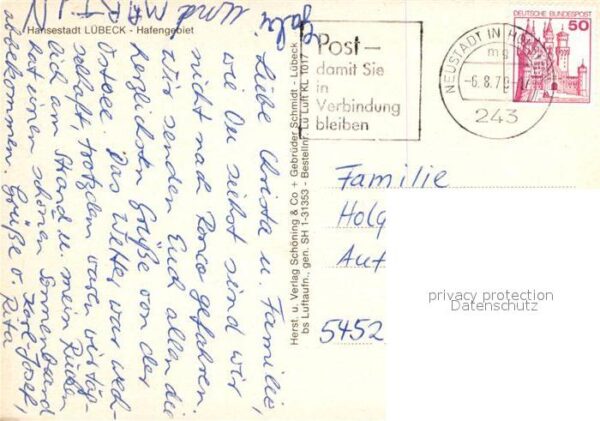 Hansestadt LÜBECK - Hafengebiet
Liebe Christa u. Familie,
wie Du siehst sind wir
nicht nach Rom gefahren.
Wir senden Euch allen die
herzlichsten Grüße von der
Ostsee. Das Wetter war wech-
selhaft, trotzdem waren wir täg-
lich am Strand u. mein Rücken
hat einen schönen Sonnenbrand
abbekommen. Grüße v. Karl-Josef,
Rita
Gabi und MARTIN
Herst. u. Verlag Schöning & Co + Gebrüder Schmidt - Lübeck
bs Luftaufn., gen. SH 1-31353 - Bestellnr. Lü Luft KL 1017
Post -
damit Sie
in
Verbindung
bleiben
NEUSTADT IN HO
mg
-6.8.79
243
DEUTSCHE BUNDESPOST
50
Familie
Holg
Auf
5452
privacy protection
Datenschutz